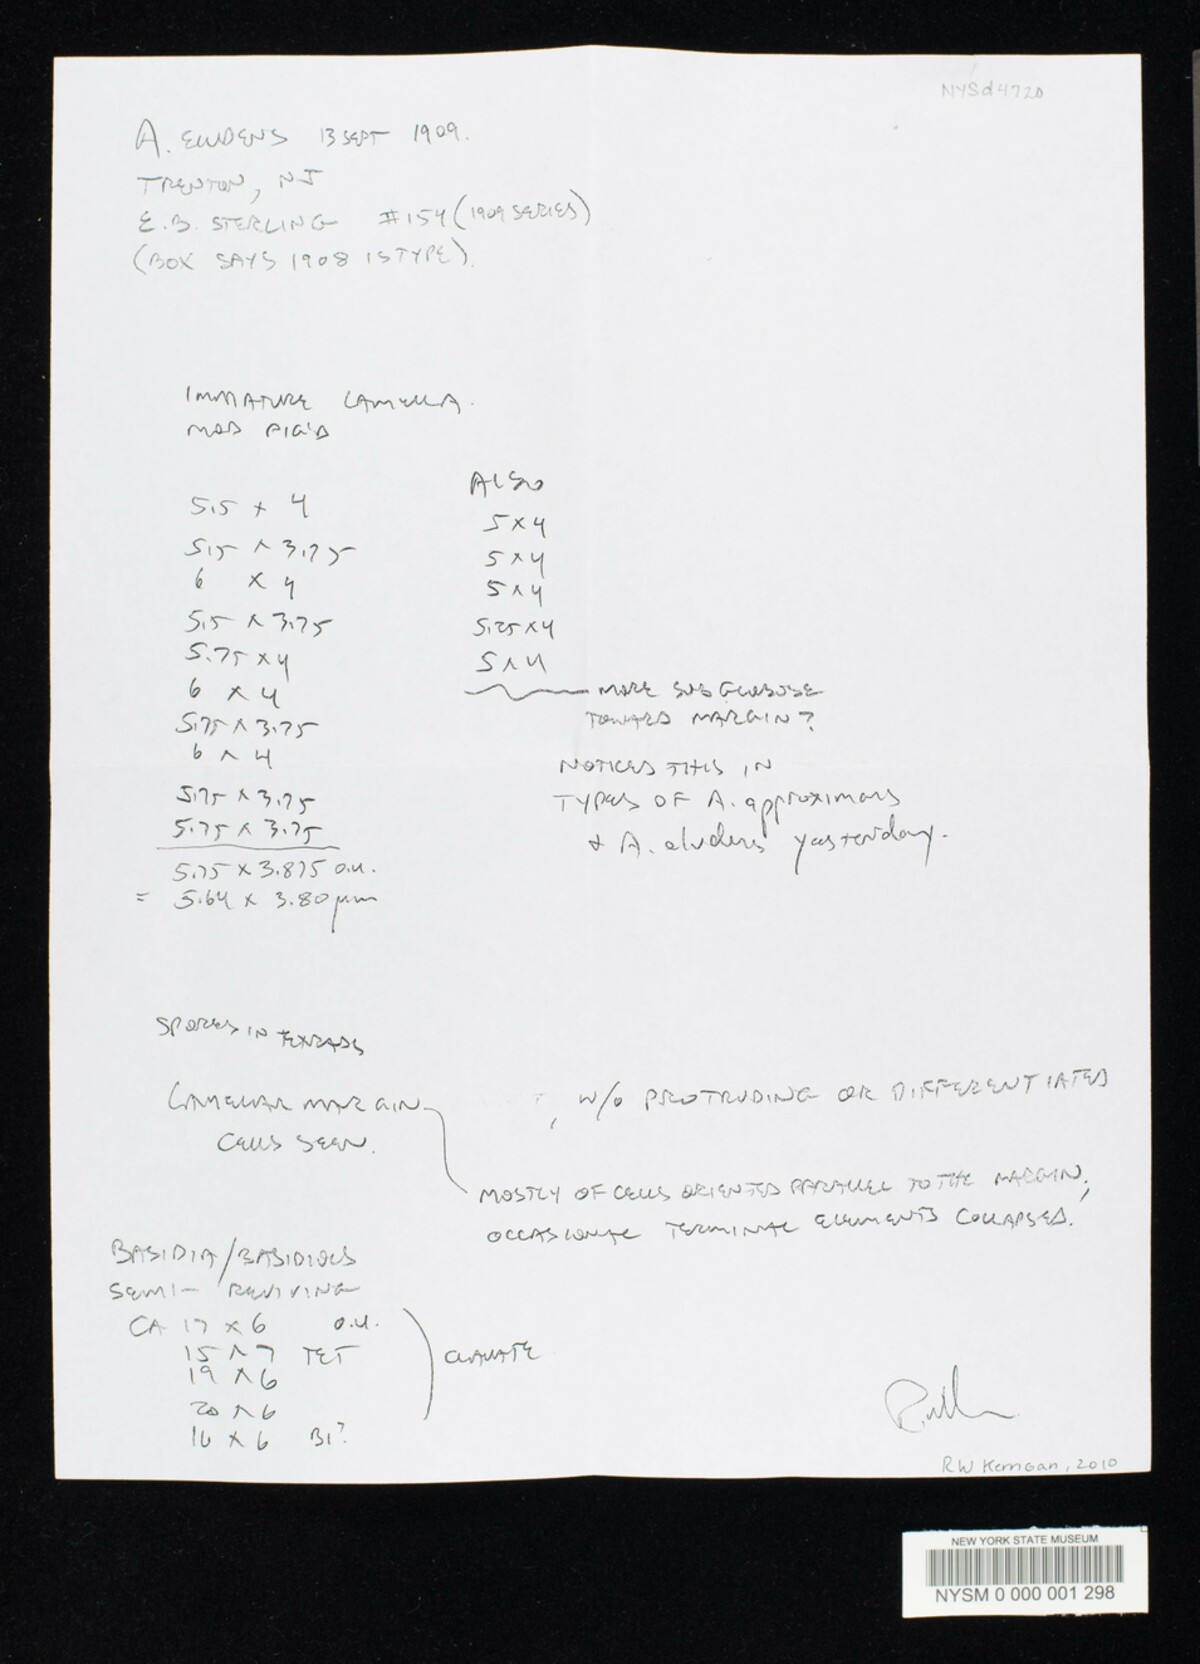 NYSd4720
A. ELUDENS 13 SEPT 1909.
TRENTON, NJ
E.B. STERLING #154 (1909 SERIES)
(BOX SAYS 1908 IS TYPE).
IMMATURE LAMELLA.
MOD PIG'D
5.5 x 4
5.5 x 3.75
6 x 4
5.5 x 3.75
5.75 x 4
6 x 4
5.75 x 3.75
6 x 4
5.75 x 3.75
5.75 x 3.75
5.75 x 3.875 o.u.
= 5.64 x 3.80 µm
ALSO
5 x 4
5 x 4
5 x 4
5.25 x 4
5 x 4
MORE SUBGLOBOSE
TOWARD MARGIN?
NOTICED THIS IN
TYPES OF A. approximans
+ A. eludens yesterday.
SPORES IN TETRADS
LAMELLAR MARGIN
CELLS SEEN.
, W/O PROTRUDING OR DIFFERENTIATED
MOSTLY OF CELLS ORIENTED PARALLEL TO THE MARGIN;
OCCASIONAL TERMINAL ELEMENTS COLLAPSED.
BASIDIA/BASIDIOLES
SEMI- REVIVING
CA 17 x 6 o.u.
15 x 7 TET
19 x 6
20 x 6
16 x 6 BI?
CLAVATE
RW Kerrigan, 2010
NEW YORK STATE MUSEUM
NYSM 0 000 001 298